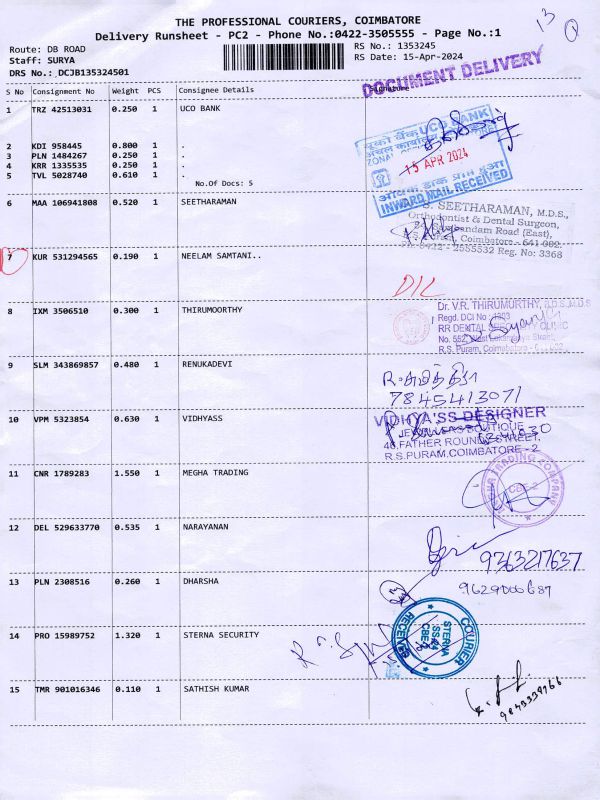 THE PROFESSIONAL COURIERS, COIMBATORE
Delivery Runsheet - PC2 - Phone No.:0422-3505555 - Page No.:1
13
Route: DB ROAD
RS No.: 1353245
Staff: SURYA
RS Date: 15-Apr-2024
DRS No.: DCJB135324501
DOCUMENT DELIVERY
S No Consignment No Weight PCS Consignee Details Signature
1 TRZ 42513031 0.250 1 UCO BANK
2 KDI 958445 0.800 1 .
3 PLN 1484267 0.250 1 .
4 KRR 1335535 0.250 1 .
5 TVL 5028740 0.610 1 .
No.Of Docs: 5
UCO BANK
ZONAL
15 APR 2024
INWARD MAIL RECEIVED
6 MAA 106941808 0.520 1 SEETHARAMAN
SEETHARAMAN, M.D.S.,
Orthodontist & Dental Surgeon,
Road (East),
Coimbatore - 641 002,
2555532 Reg. No: 3368
7 KUR 531294565 0.190 1 NEELAM SAMTANI..
D/L
8 IXM 3506510 0.300 1 THIRUMOORTHY
Dr. V.R. THIRUMURTHY, B.D.S.,M.D.S
Regd. DCI No : 1303
RR DENTAL SPECIALITY CLINIC
No. 552, West Lokamanya Street,
R.S. Puram, Coimbatore
9 SLM 343869857 0.480 1 RENUKADEVI
7845413071
10 VPM 5323854 0.630 1 VIDHYASS
VIDHYA'SS DESIGNER
BOUTIQUE
FATHER ROUND STREET,
R.S.PURAM,COIMBATORE - 2
11 CNR 1789283 1.550 1 MEGHA TRADING
MEGHA TRADING COMPANY
CBE-2
12 DEL 529633770 0.535 1 NARAYANAN
9363217637
13 PLN 2308516 0.260 1 DHARSHA
9629000687
14 PRO 15989752 1.320 1 STERNA SECURITY
COURIER
STERNA
RECEIVED
15 TMR 901016346 0.110 1 SATHISH KUMAR